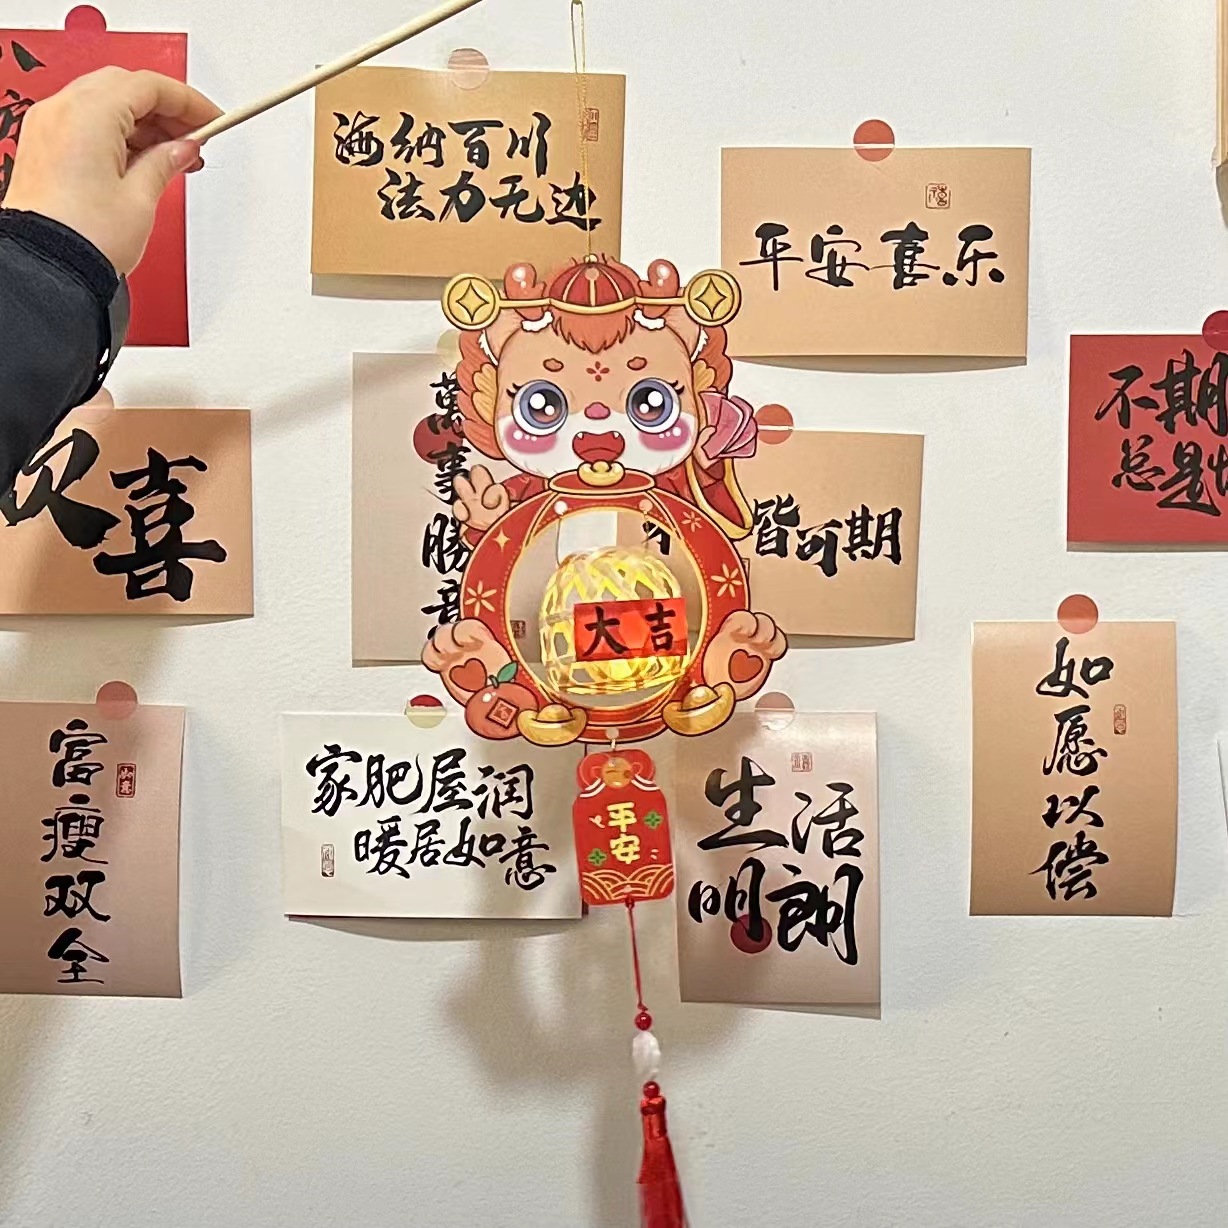 海纳百川
法力无边
平安喜乐
不期
总是
喜
萬事勝意
皆可期
大吉
如愿以偿
富瘦双全
家肥屋润
暖居如意
生活
明朗
平安